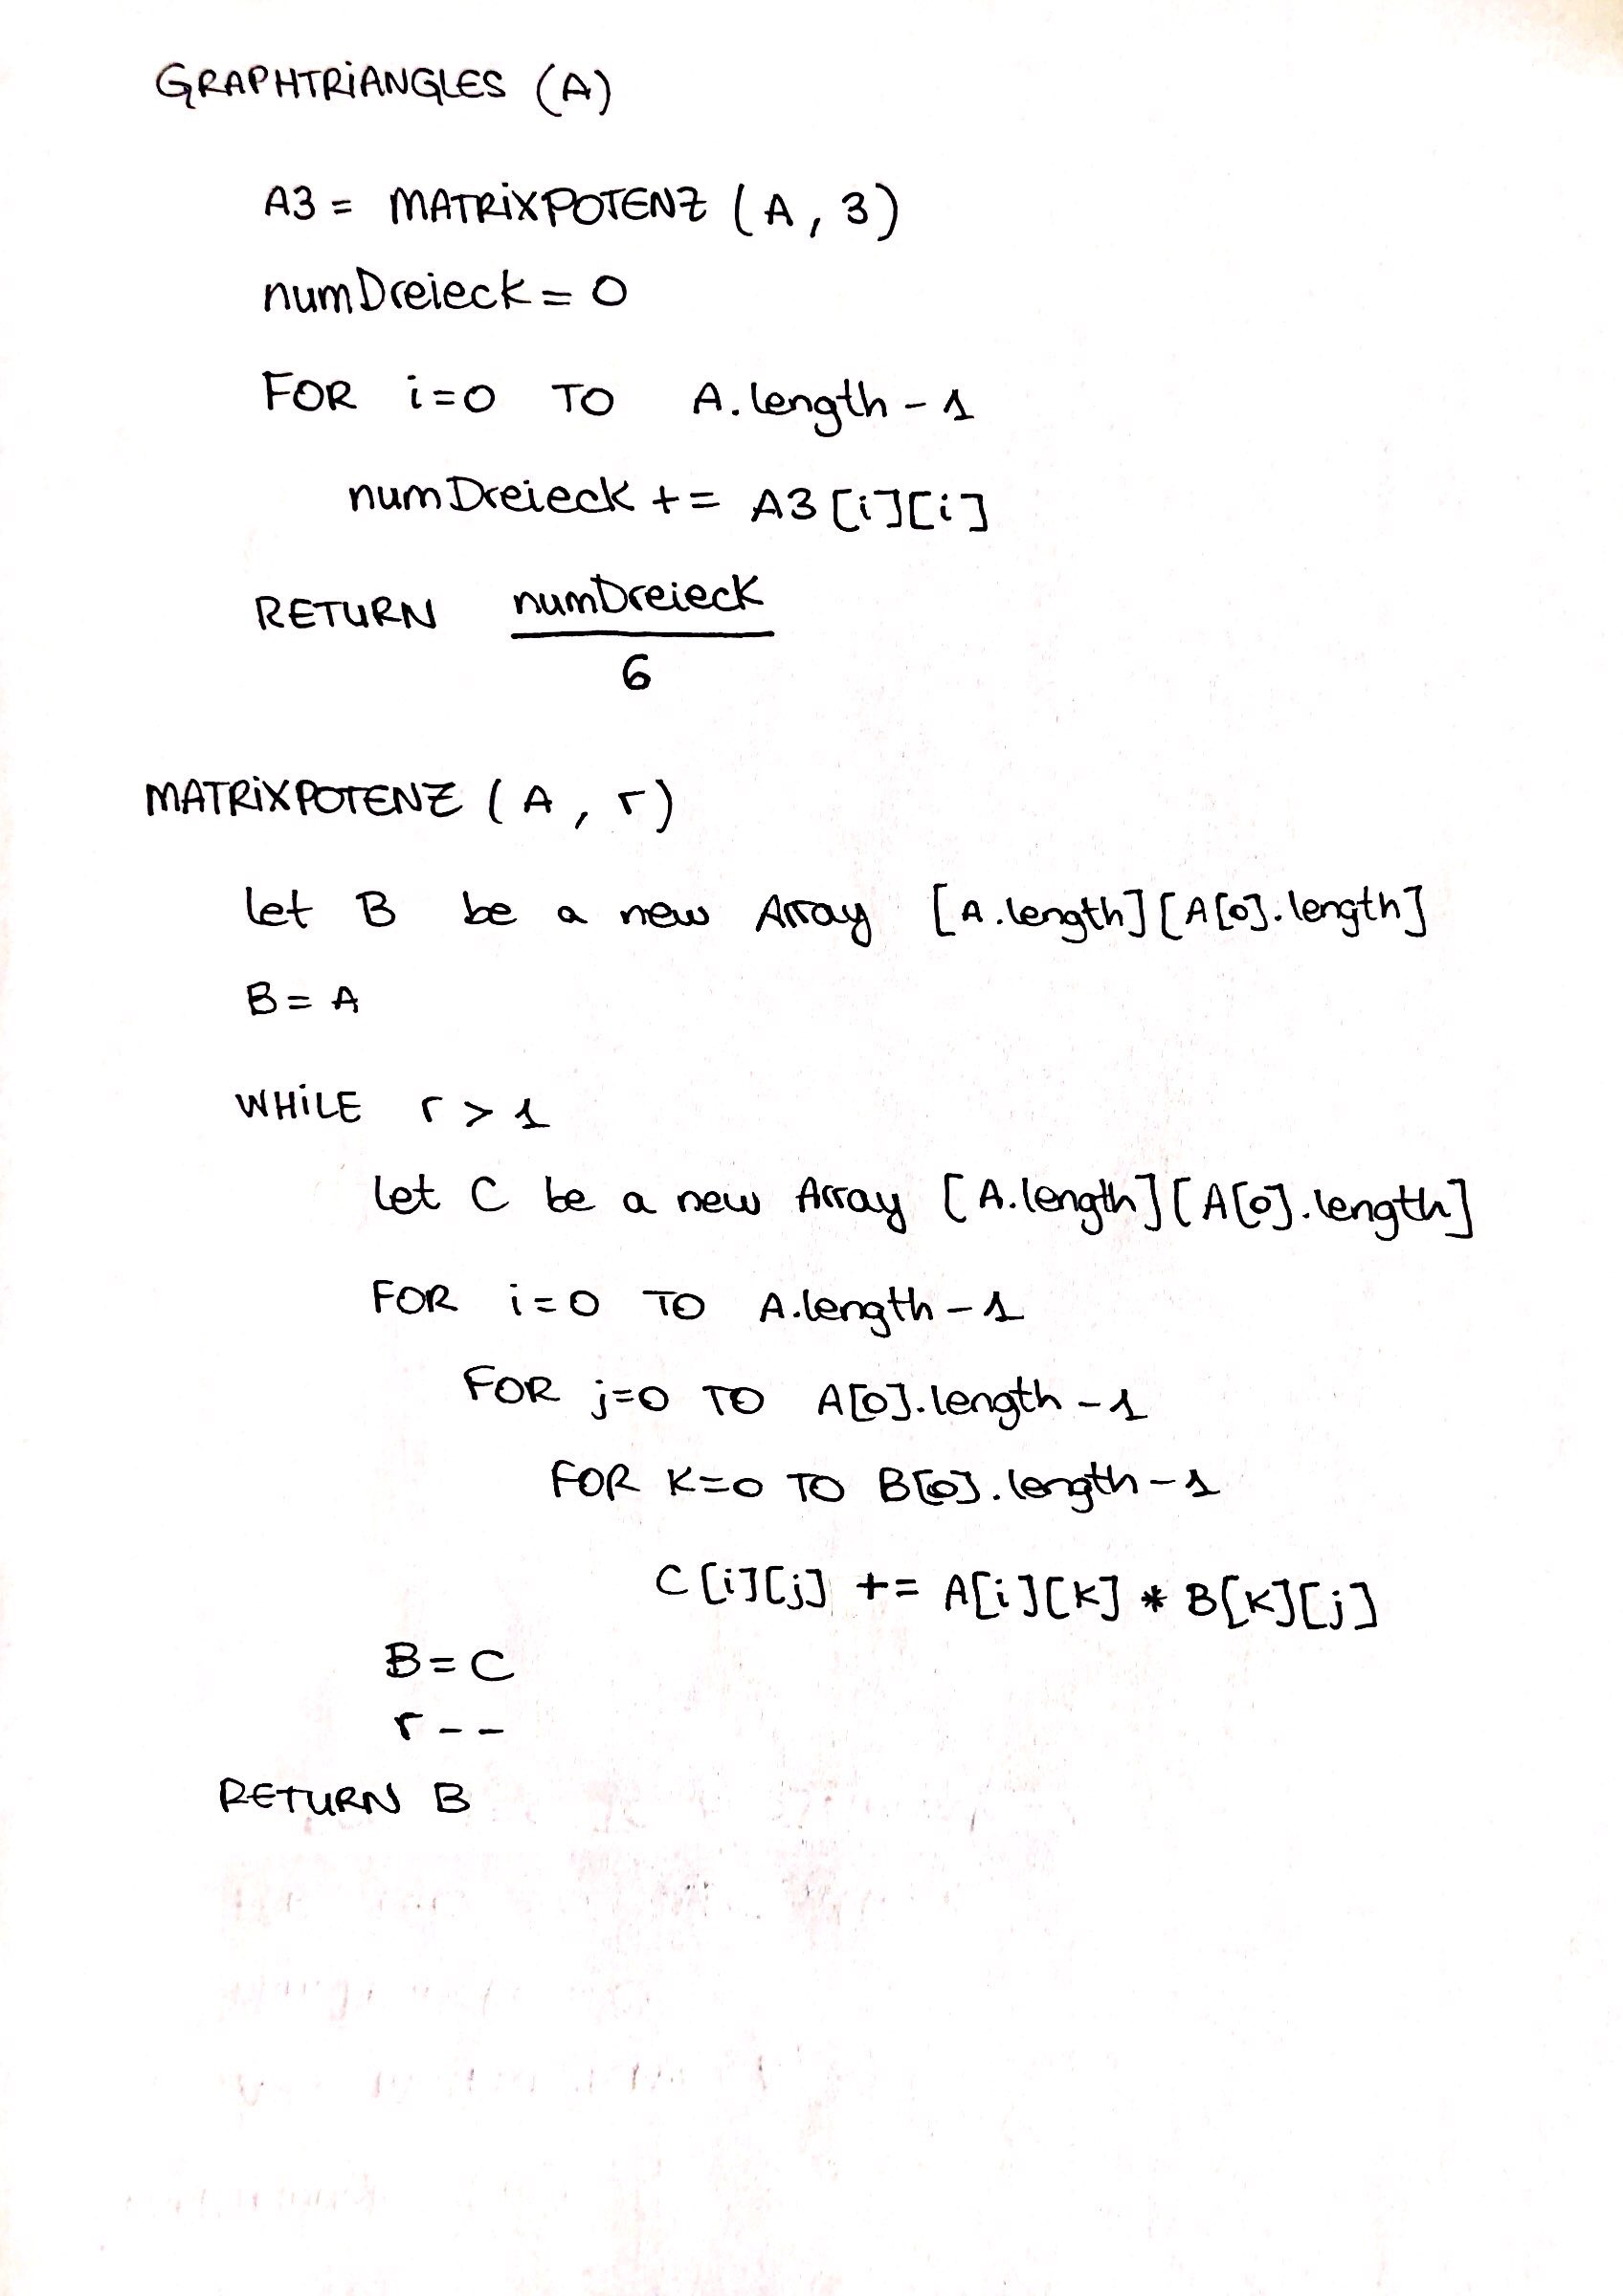 GRAPHTRIANGLES (A)
A3 = MATRIXPOTENZ (A, 3)
numDreieck = 0
FOR i=0 TO A.length - 1
numDreieck += A3[i][i]
RETURN numDreieck
6
MATRIXPOTENZ (A, r)
let B be a new Array [A.length][A[0].length]
B = A
WHILE r > 1
let C be a new Array [A.length][A[0].length]
FOR i=0 TO A.length - 1
FOR j=0 TO A[0].length - 1
FOR k=0 TO B[0].length - 1
C[i][j] += A[i][k] * B[k][j]
B = C
r--
RETURN B